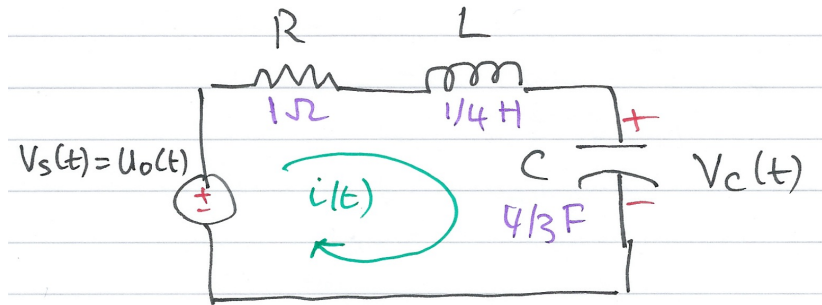 R
L
1Ω
1/4 H
+
Vs(t) = u₀(t)
+
-
i(t)
C
4/3 F
Vc(t)
-